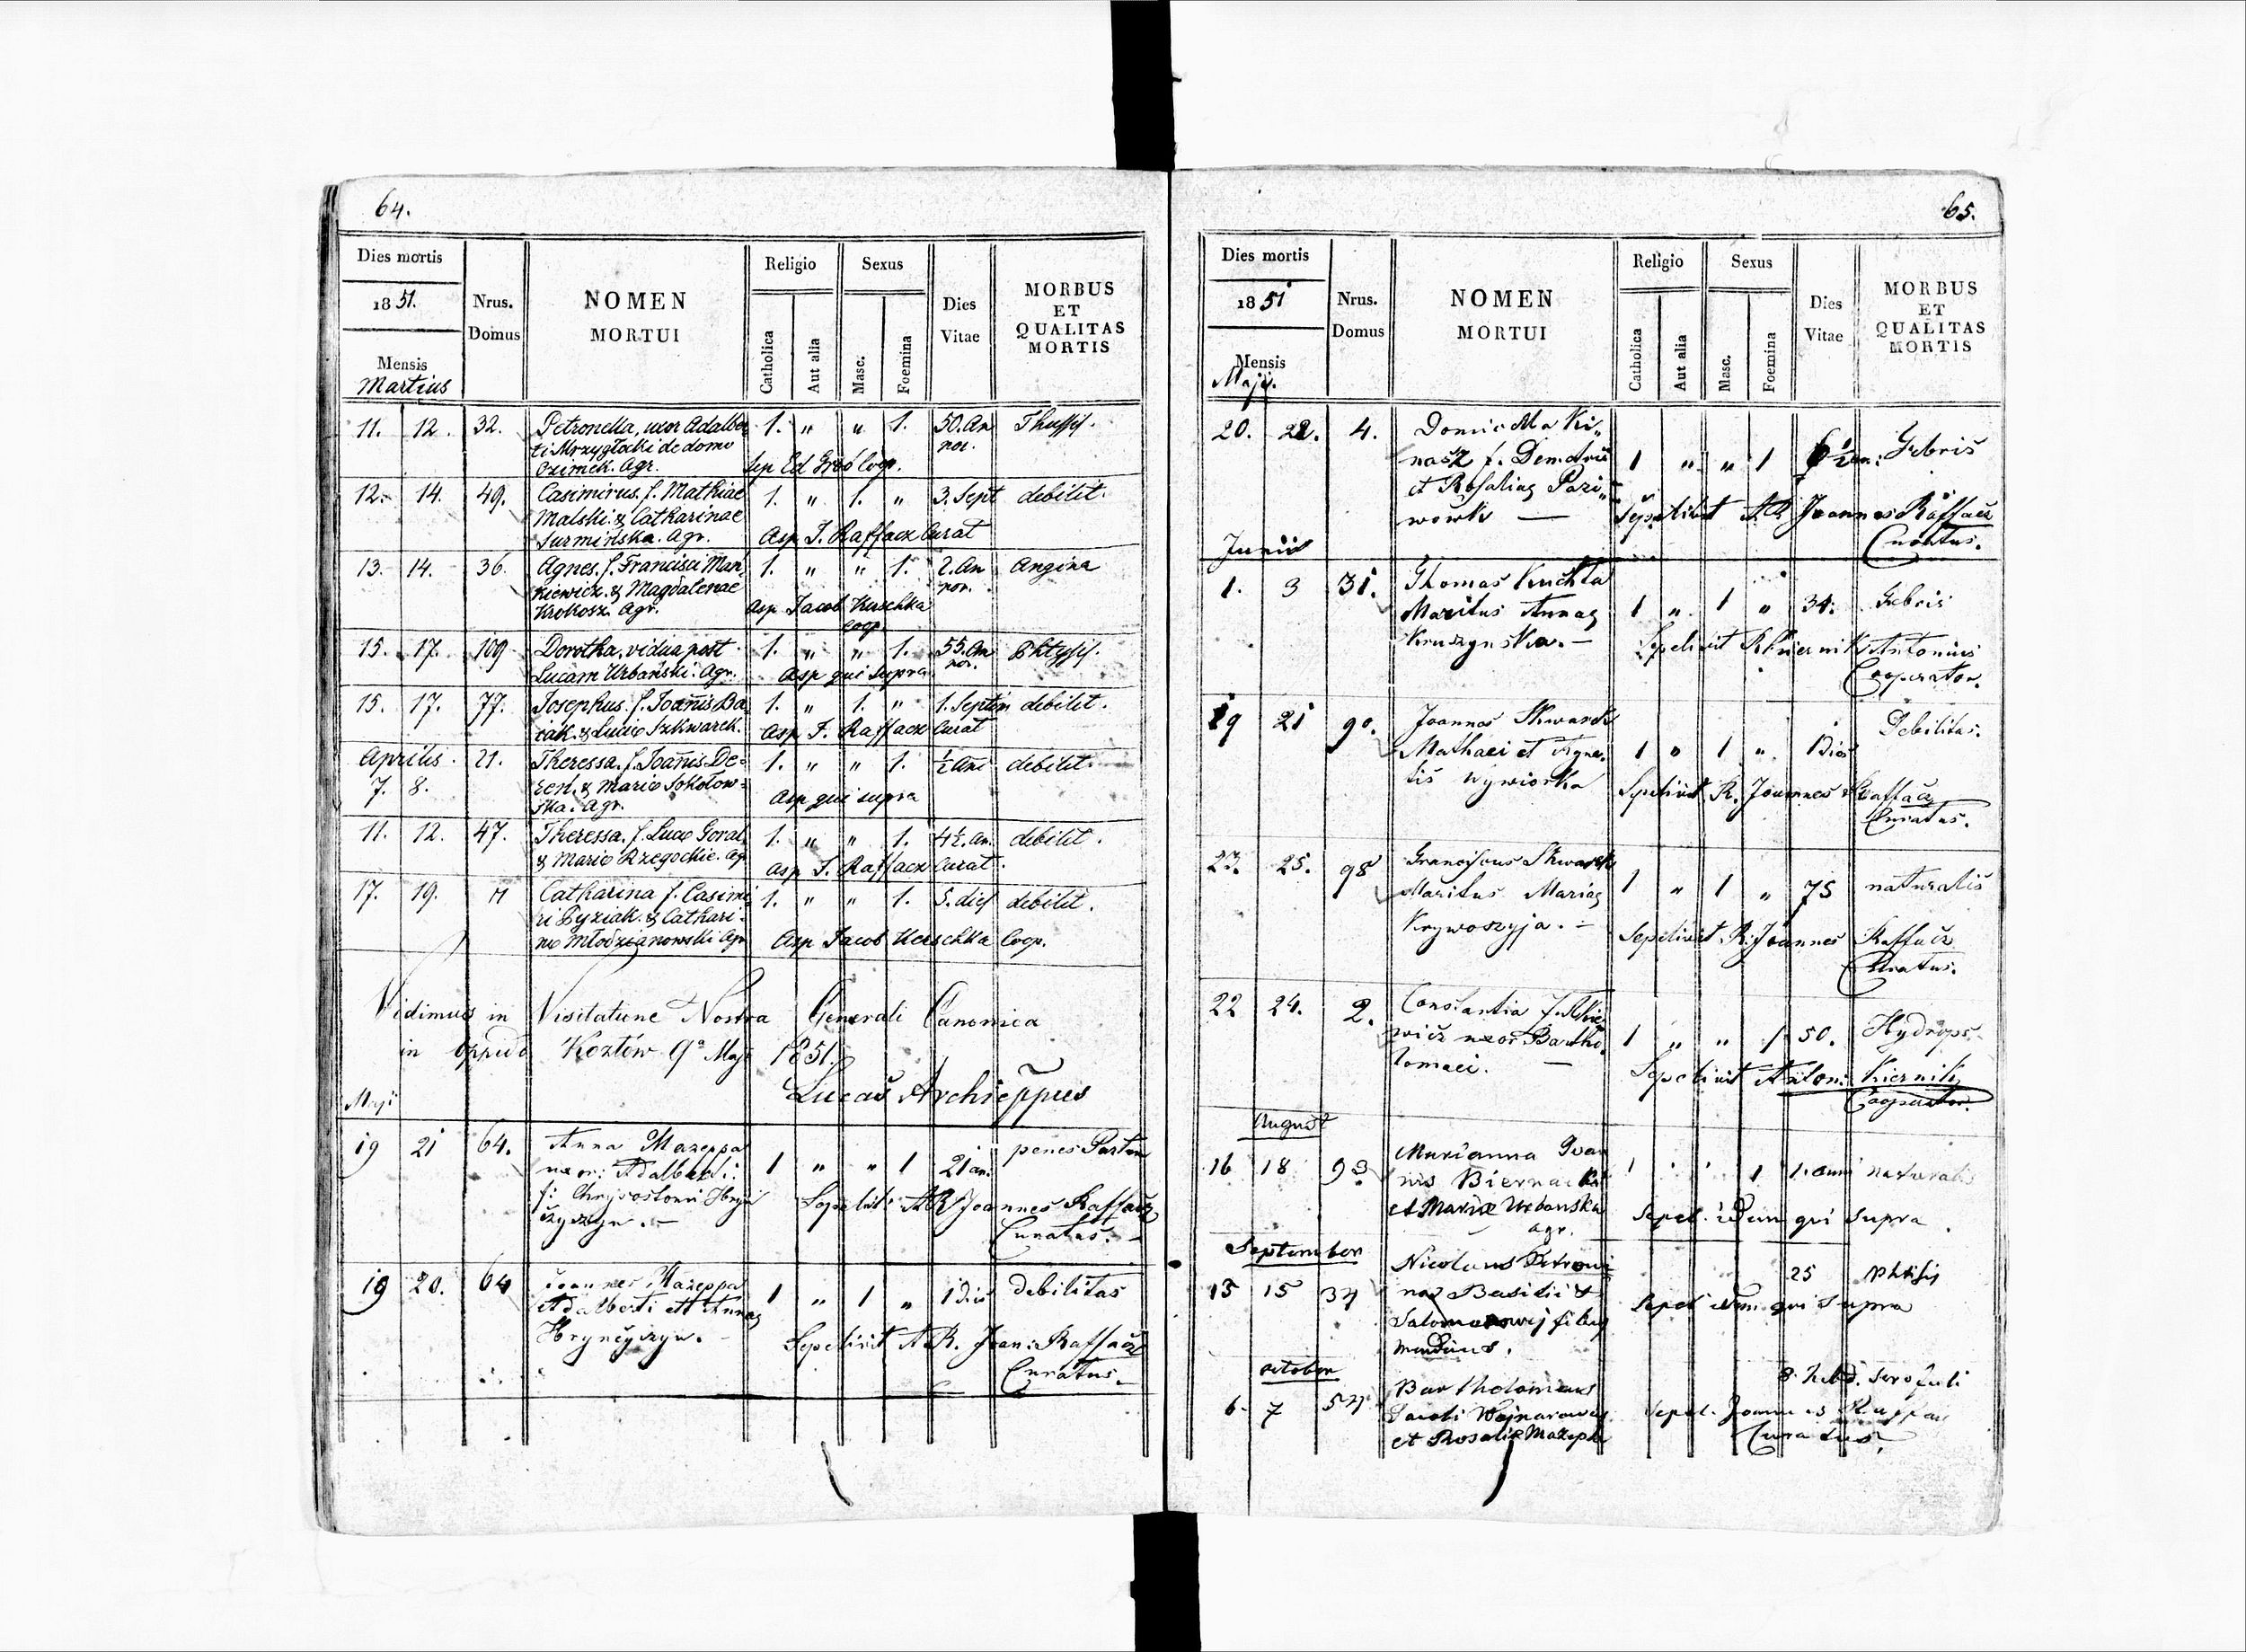 64.
Dies mortis
1851.
Mensis
Martius
Nrus.
Domus
NOMEN
MORTUI
Religio
Catholica
Aut alia
Sexus
Masc.
Foemina
Dies
Vitae
MORBUS
ET
QUALITAS
MORTIS
11. 12. 32. Petronella, uxor Adalber 1. " " 1. 50. An Thussis.
ti Mrzygłocki de domo nor.
Ozimek. Agr. Sep Ed Groó Coop.
12. 14. 49. Casimirus. f. Mathiae 1. " 1. " 3. Sept debilit.
Malski. & Catharinae
Surmińska. Agr. Asp J. Raffacz Curat
13. 14. 36. Agnes. f. Francisci Man 1. " " 1. 2. An Angina
kiewicz. & Magdalenae nor.
Krokosz. Agr. Asp Jacob Kerschka
Coop.
15. 17. 109 Dorotha, vidua post 1. " " 1. 55. An Phtysis.
Lucam Urbański. Agr. Asp qui supra nor.
15. 17. 77. Josephus. f. Joannis Ba 1. " 1. " 1. Septim debilit.
iak. & Luciæ Szkwarek. Asp J. Raffacz Curat
Aprilis. 21. Theressa. f. Joannis De 1. " " 1. ½ Ani debilit.
7. 8. & Mariæ Sokołow=
ska. Agr. Asp qui supra
11. 12. 47. Theressa. f. Lucæ Goral 1. " " 1. 4½. An. debilit.
& Mariæ Rzegockie. Agr Asp J. Raffacz Curat.
17. 19. Catharina f. Casimi 1. " " 1. 5. dies debilit.
ri Pyziak. & Cathari=
næ Młodzianowski Agr Asp Jacob Kerschka Coop.
Vidimus in Visitatione Nostra Generali Canonica
in oppido Kozłów 9ª Maji 1851.
Lucas Archieppus
Maji
19 21 64. Anna Mazeppa 1 " " 1 21 an. penes Partum
uxor: Adalberti:
f: Chrysostomi Hryn
czyszyn. — Sepelit: AR Joannes Raffacz
Curatus. —
19 20. 64 Joannes Mazeppa 1 " 1 " 1 Dies Debilitas
Adalberti et Annæ
Hrynczyszyn. Sepelivit A.R. Joan: Raffacz
Curatus.
65.
Dies mortis
1851
Mensis
Maji.
Nrus.
Domus
NOMEN
MORTUI
Religio
Catholica
Aut alia
Sexus
Masc.
Foemina
Dies
Vitae
MORBUS
ET
QUALITAS
MORTIS
20. 22. 4. Domicella Ki„
nasz f. Demetrii 1 " " 1 6½ an: Febris
et Rosaliæ Pazi„
wowk — Sepelivit A.R. Joannes Raffacz
Curatus.
Junii
1. 3 31. Thomas Kuchta
Maritus Annæ 1 " 1 " 34. Febris
Kruszynska. — Sepelivit Kiernik Antonius
Cooperator.
19 21 90. Joannes Skwarek Debilitas.
Mathaei et Agne= 1 " 1 " 1 Dies
tis Wywiorka Sepelivit R. Joannes Raffacz
Curatus.
23. 25. 98 Franciscus Skwarek
Maritus Mariæ 1 " 1 " 75 naturalis
Krywoszyja. — Sepelivit R. Joannes Raffacz
Curatus.
22 24. 2. Constantia
uxor Bartho= 1 " " 1 50. Hydrops.
lomaei. — Sepelivit Anton: Kiernik
Cooperator.
August
16 18 93 Marianna Ioan
nis Biernacki 1 1 1. anni naturalis
et Mariæ Urbanska
agr. Sepel. idem qui supra.
September
Nicolaus Petrowi 25 phtisis
15 15 37 Basilii &
Sepel. idem qui supra
mendicus.
October
8. hebd. scrofuli
6. 7 57 Bartholomeus
Jacobi Wojnarowicz Sepel. Joannes Raffacz
et Rosaliæ Mazepka Curatus.